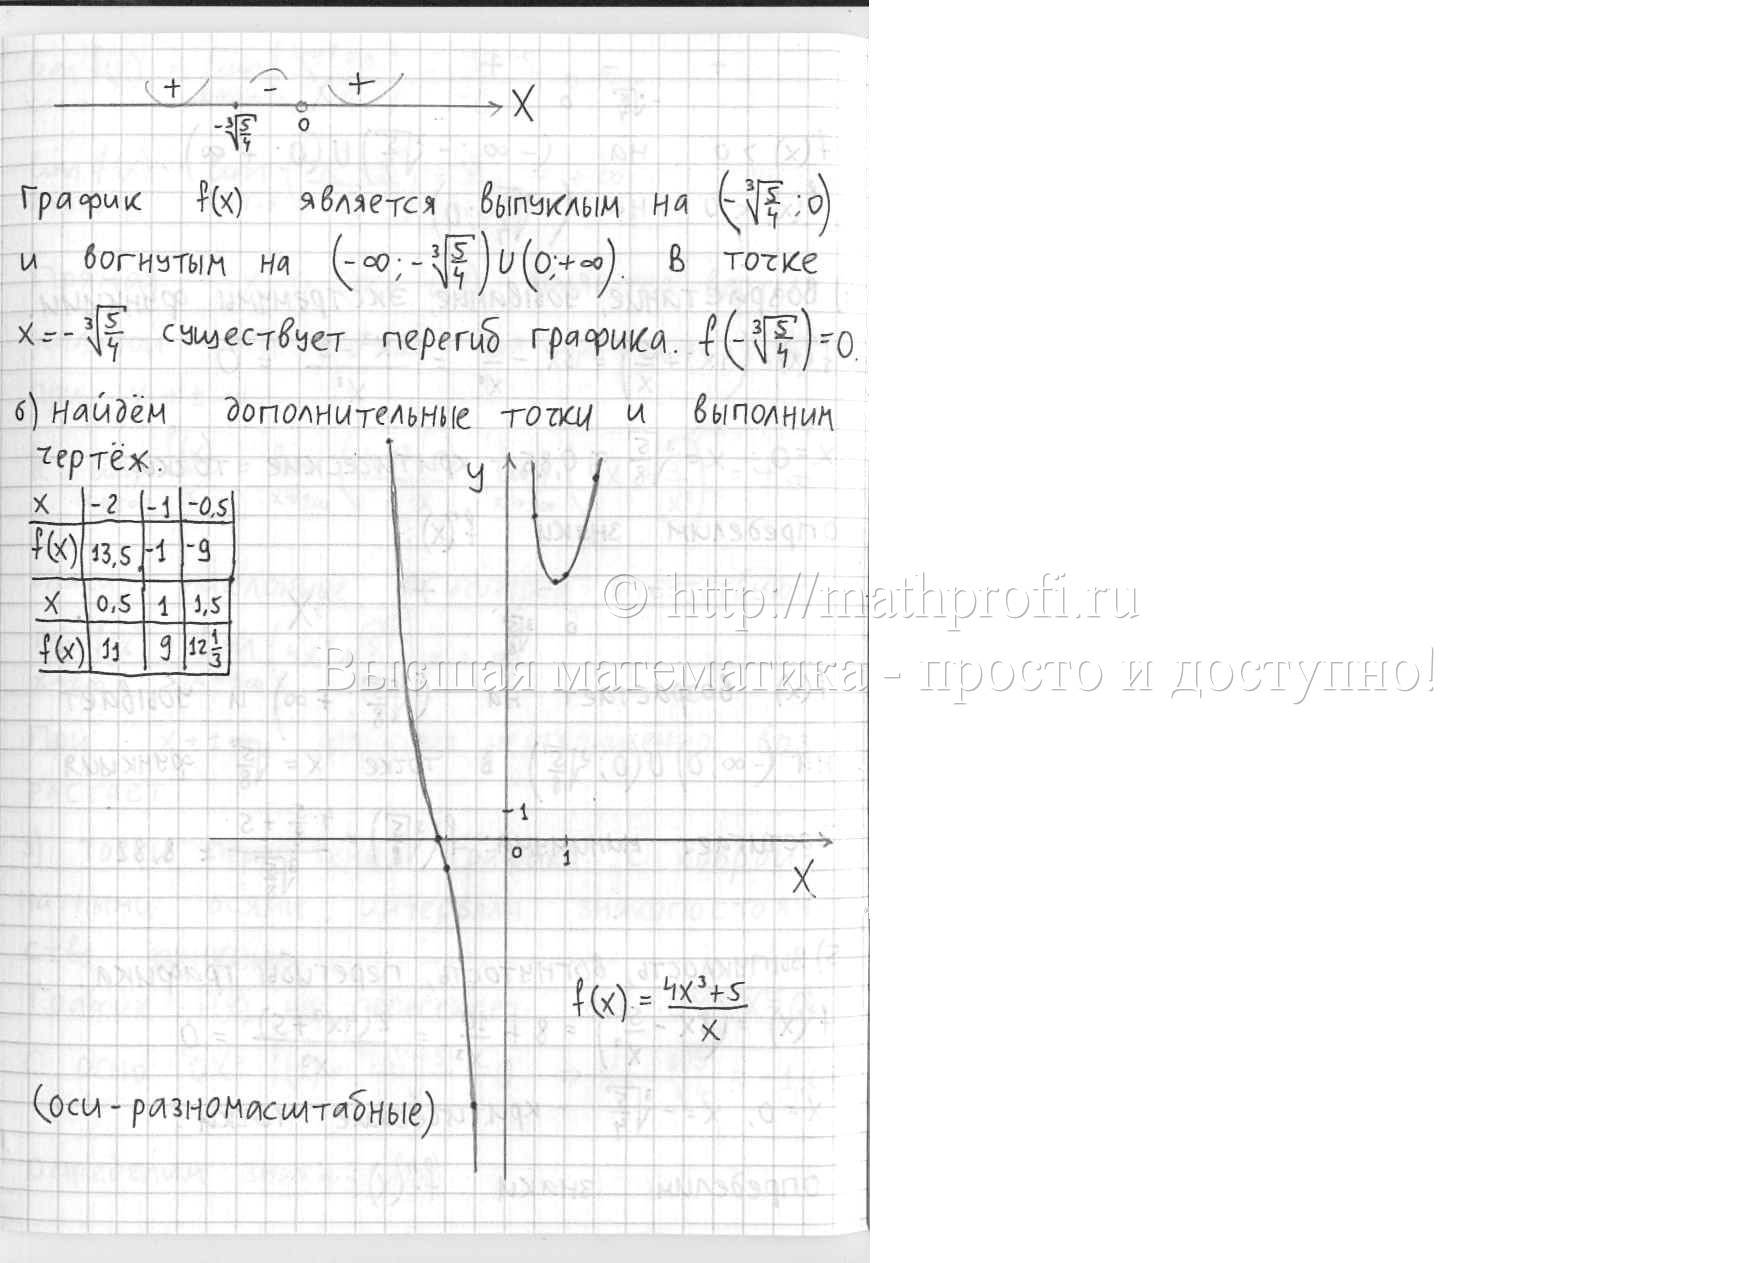 + - + X
-∛(5/4) 0
График f(x) является выпуклым на (-∛(5/4);0)
и вогнутым на (-∞;-∛(5/4))U(0;+∞). В точке
x=-∛(5/4) существует перегиб графика. f(-∛(5/4))=0.
6) Найдём дополнительные точки и выполним
чертёж.
x -2 -1 -0,5
f(x) 13,5 -1 -9
x 0,5 1 1,5
f(x) 11 9 12 1/3
y
1
0 1
X
f(x) = (4x³+5)/x
(оси - разномасштабные)
© http://mathprofi.ru
Высшая математика - просто и доступно!